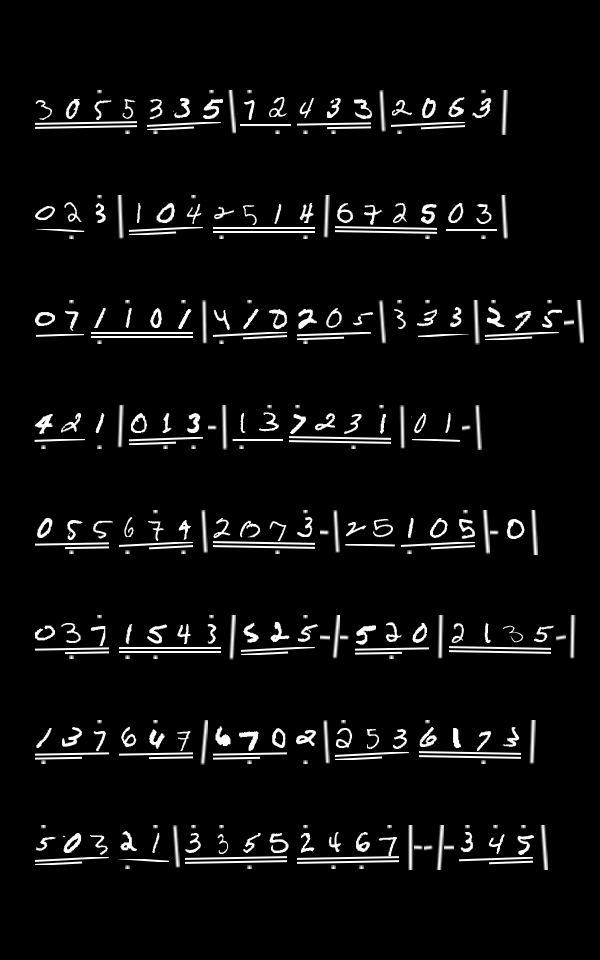 3 0 5 5 3 3 5 | 7 2 4 3 3 | 2 0 6 3 |
0 2 3 | 1 0 4 2 5 1 4 | 6 7 2 5 0 3 |
0 7 1 1 0 1 | 4 1 0 2 0 5 | 3 3 3 | 2 7 5 - |
4 2 1 | 0 1 3 - | 1 3 7 2 3 1 | 0 1 - |
0 5 5 6 7 4 | 2 0 7 3 - | 2 5 1 0 5 | - 0 |
0 3 7 1 5 4 3 | 5 2 5 - | - 5 2 0 | 2 1 3 5 - |
1 3 7 6 4 7 | 6 7 0 2 | 2 5 3 6 1 7 3 |
5 0 3 2 1 | 3 3 5 5 2 4 6 7 | - - | - 3 4 5 |